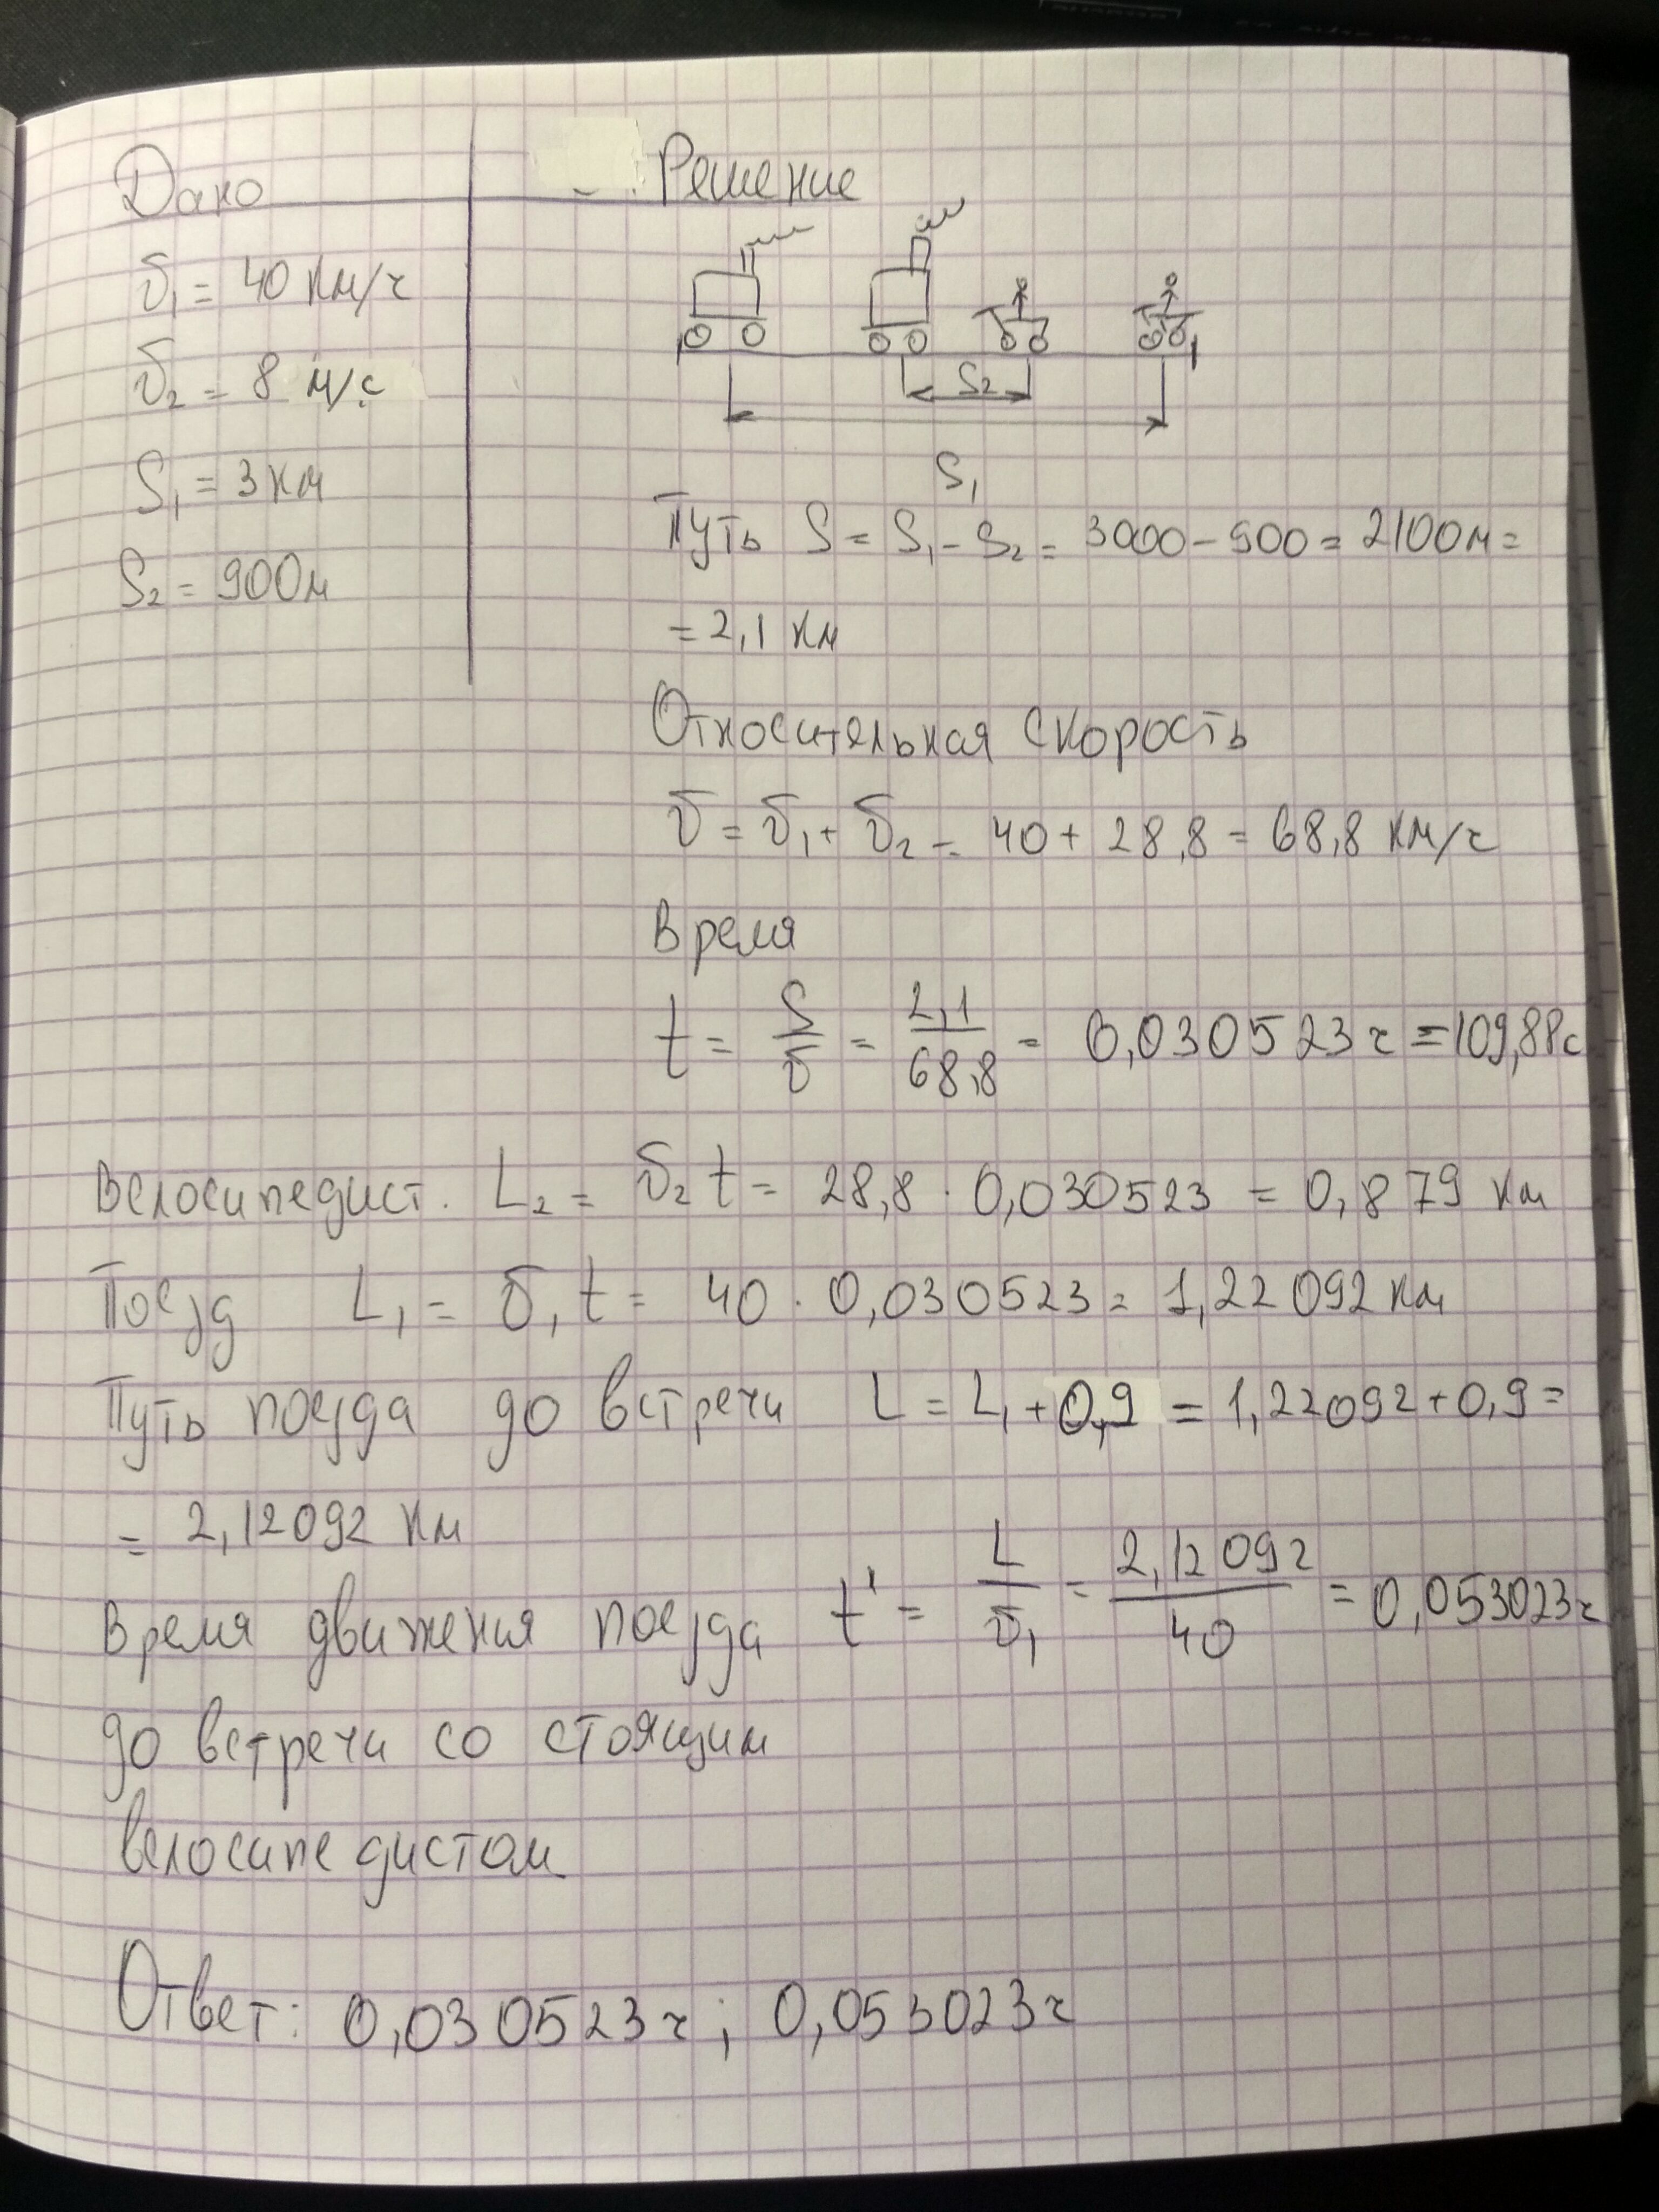 Дано
Решение
υ₁ = 40 км/ч
υ₂ = 8 м/с
S₁ = 3 км
S₂ = 900м
S₂
S₁
Путь S = S₁ - S₂ = 3000 - 900 = 2100м =
= 2,1 км
Относительная скорость
υ = υ₁ + υ₂ = 40 + 28,8 = 68,8 км/ч
Время
t = S/υ = 2,1/68,8 = 0,030523 ч = 109,88с
Велосипедист. L₂ = υ₂ t = 28,8 · 0,030523 = 0,879 км
Поезд L₁ = υ₁ t = 40 · 0,030523 = 1,22092 км
Путь поезда до встречи L = L₁ + 0,9 = 1,22092 + 0,9 =
= 2,12092 км
Время движения поезда t' = L/υ₁ = 2,12092/40 = 0,053023ч
до встречи со стоящим
велосипедистом
Ответ: 0,030523 ч ; 0,053023 ч